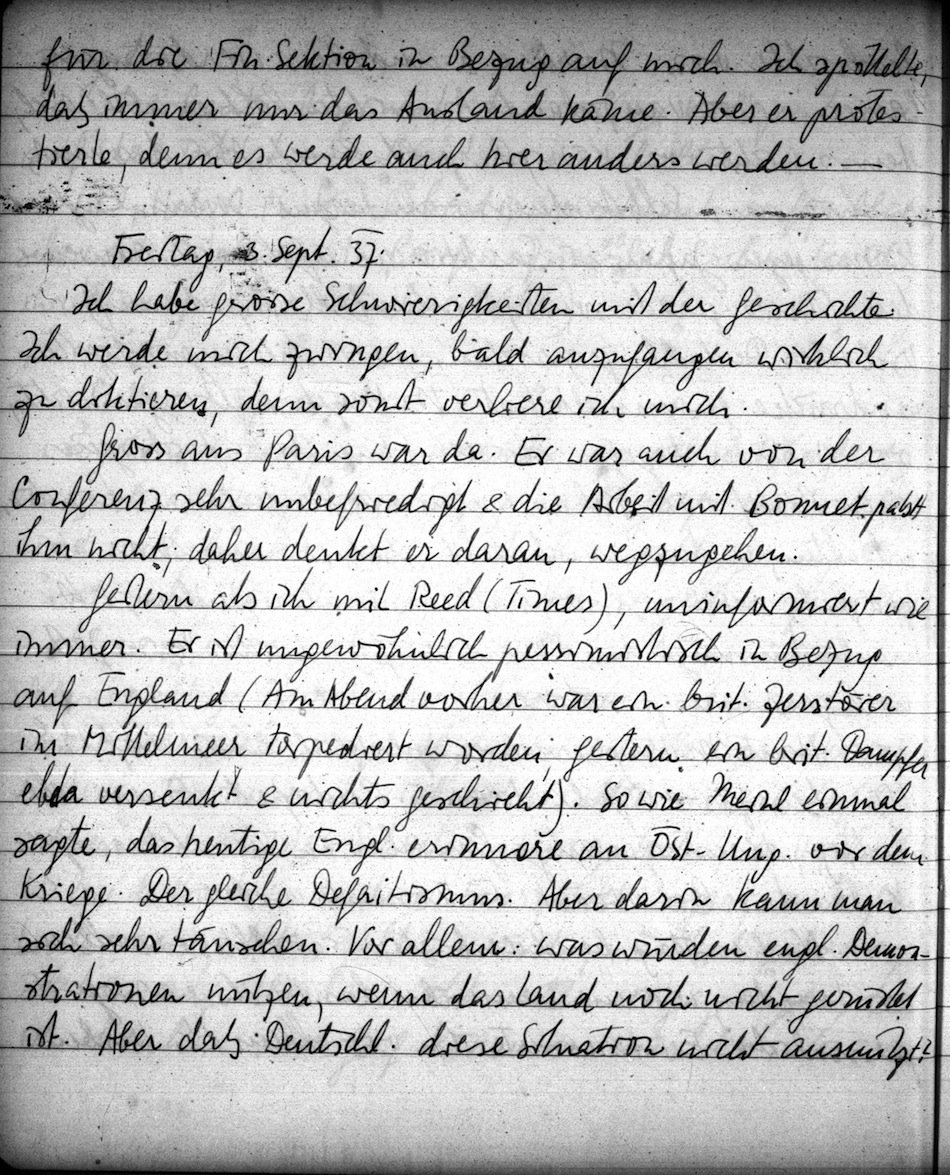 für die Fin. Sektion in Bezug auf mich. Ich spöttelte,
daß immer nur das Ausland käme. Aber er protes-
tierte, denn es werde auch hier anders werden. —
Freitag, 3. Sept. 37.
Ich habe grosse Schwierigkeiten mit der Geschichte.
Ich werde mich zwingen, bald anzufangen wirklich
zu diktieren, denn sonst verliere ich mich.
Gross aus Paris war da. Er war auch von der
Conferenz sehr unbefriedigt & die Arbeit mit Bonnet paßt
ihm nicht; daher denkt er daran, wegzugehen.
Gestern als ich mit Reed (Times), uninformiert wie
immer. Er ist ungewöhnlich pessimistisch in Bezug
auf England (Am Abend vorher war ein brit. Zerstörer
im Mittelmeer torpediert worden, gestern ein brit. Dampfer
ebda versenkt & nichts geschieht). So wie einmal
sagte, das heutige Engl. erinnere an Öst-Ung. vor dem
Kriege. Der gleiche Defaitismus. Aber darin kann man
sich sehr täuschen. Vor allem: was würden engl. Demon-
strationen nützen, wenn das Land noch nicht gerüstet
ist. Aber daß Deutschl. diese Situation nicht ausnützt?